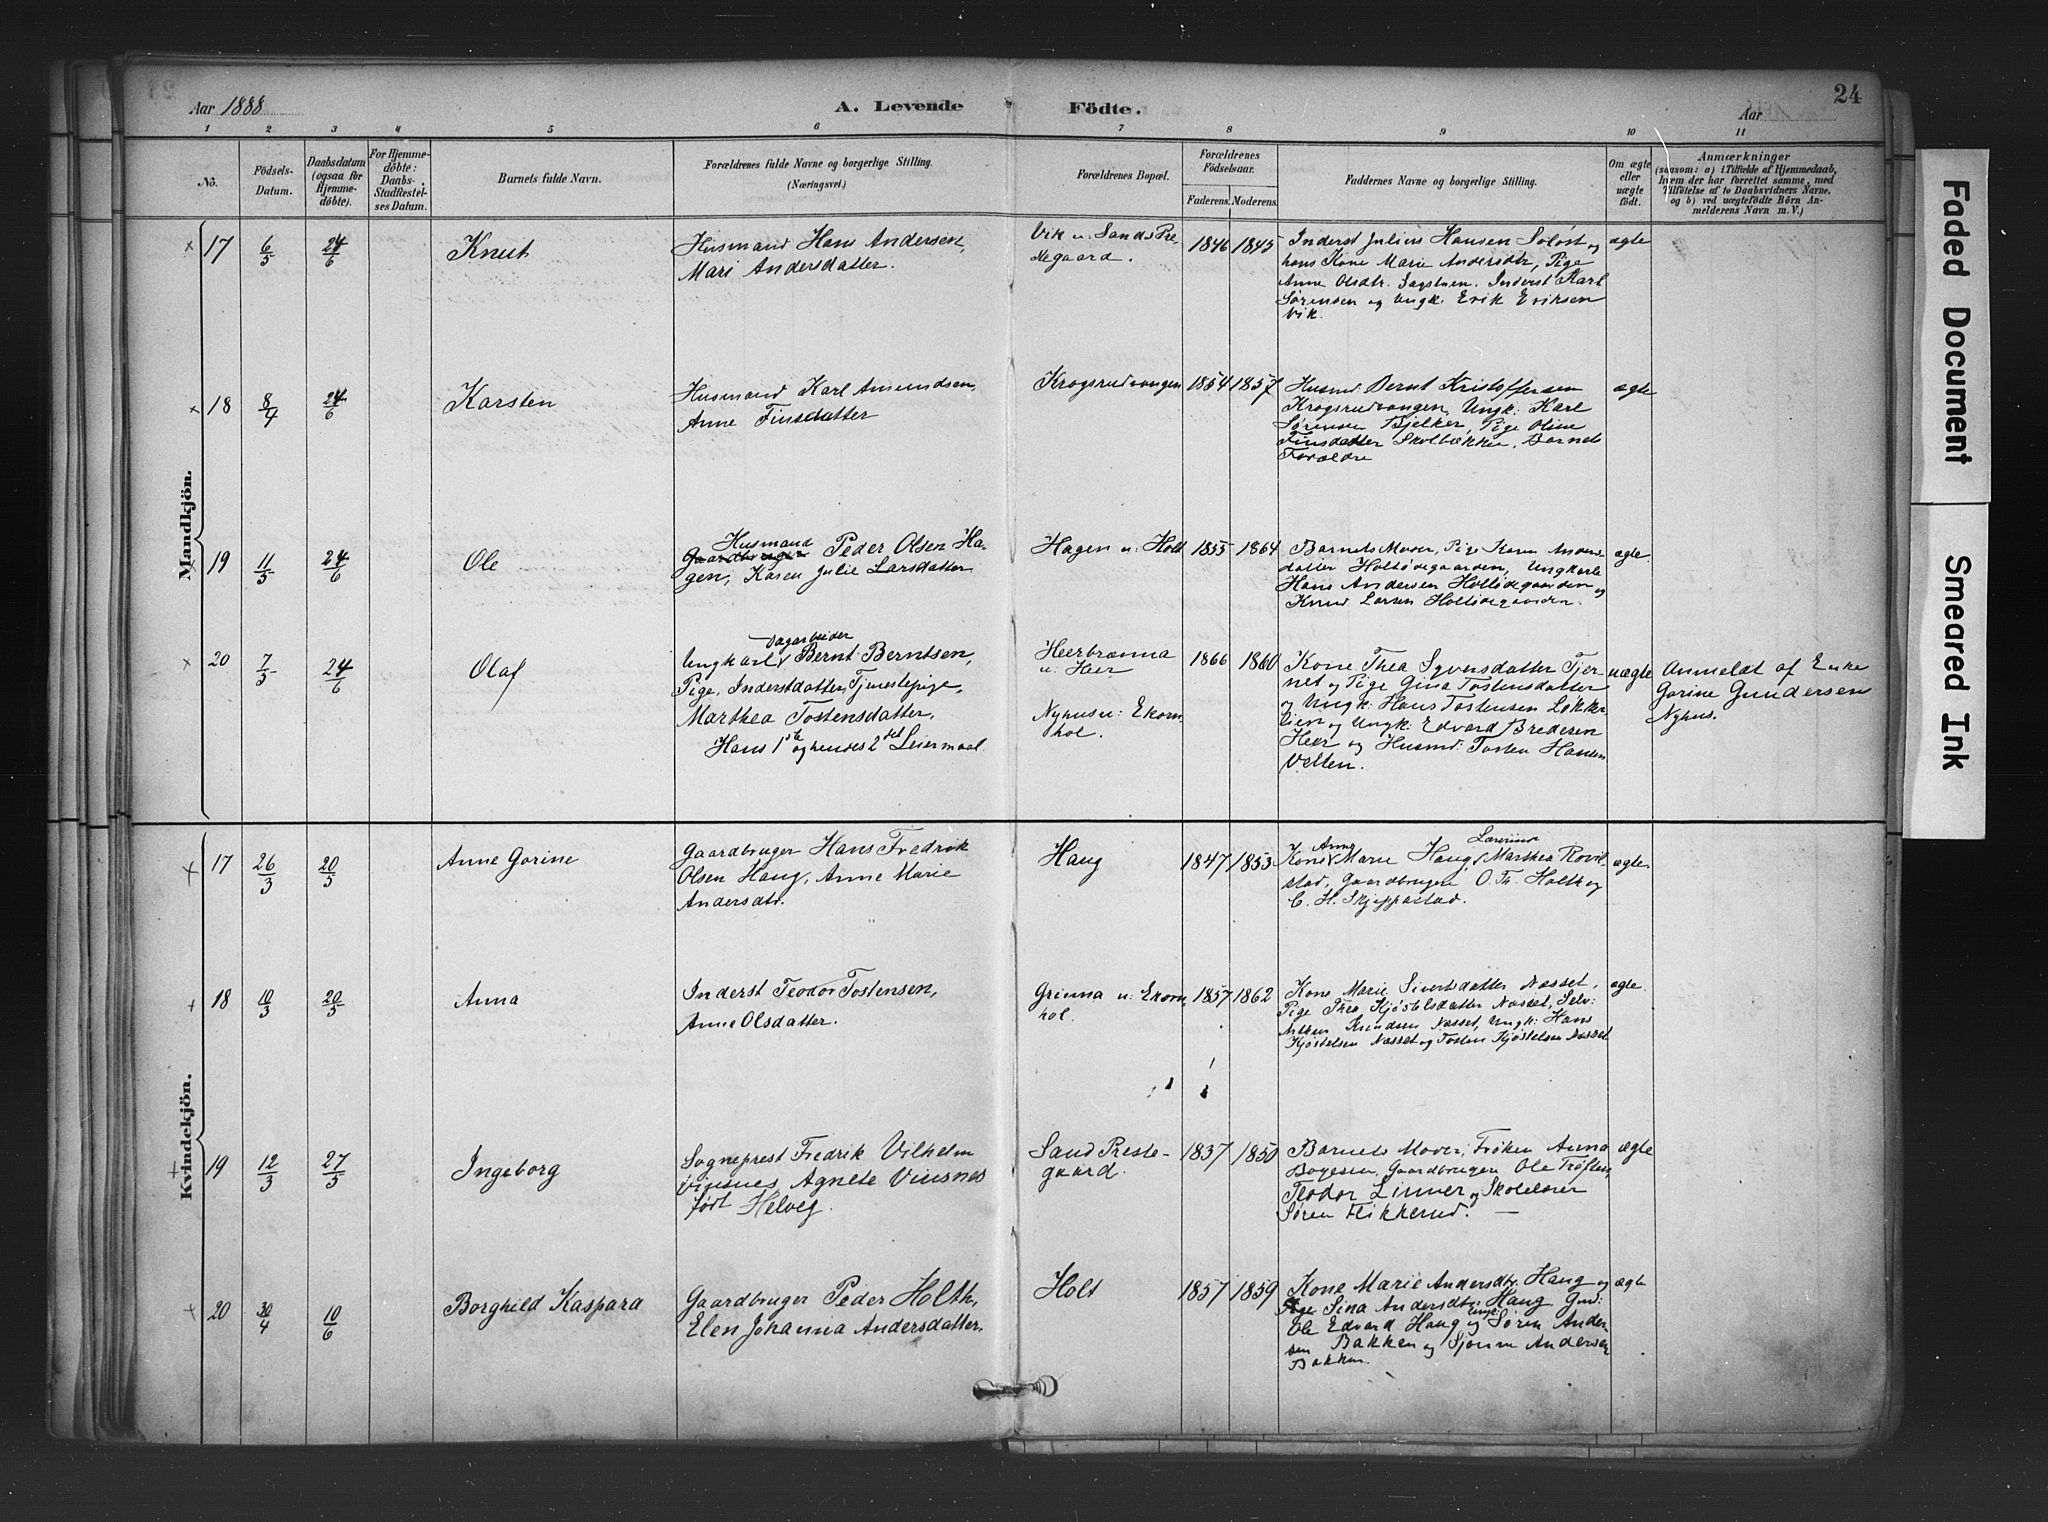 24
Aar 1888 A. Levende Födte. Aar
1 2 3 4 5 6 7 8 9 10 11
No.
Födsels-Datum.
Daabsdatum (ogsaa för Hjemme-döbte).
For Hjemme-döbte: Daabs-Stadfæstel-ses Datum.
Barnets fulde Navn.
Forældrenes fulde Navne og borgerlige Stilling. (Næringsvei.)
Forældrenes Bopæl.
Forældrenes Födselsaar.
Faderens. Moderens.
Faddernes Navne og borgerlige Stilling.
Om ægte eller uægte födt.
Anmærkninger
(saasom: a) i Tilfælde af Hjemmedaab,
hvem der har forrettet samme, med
Tilföielse af to Daabsvidners Navne,
og b) ved uægtefödte Börn An-
melderens Navn m. V.)
Mandkjön.
× 17 6/5 24/6 Knut
Husmand Hans Andersen,
Mari Andersdatter.
Vik u. Sands Pre-
stegaard.
1846 1845
Inderst Julius Hansen Soløst og
hans Kone Marie Andersdtr, Pige
Anne Olsdtr. Sagstuen. Inderst Karl
Sørensen og Ungk. Erik Eriksen
Vik.
ægte
× 18 8/4 24/6 Karsten
Husmand Karl Amundsen,
Anne Finsdatter
Krogsrudvangen 1854 1857
Husmd Bernt Kristoffersen
Krogsrudvangen, Ungk: Karl
Sørensen Bjelker, Pige Oline
Finsdatter Skolbækken, Barnets
Forældre
ægte
× 19 11/5 24/6 Ole
Husmand
Gaardbruger Peder Olsen Ha-
gen, Karen Julie Larsdatter
Hagen u. Holt 1855 1864
Barnets Moder, Pige Karen Anders-
datter Holtødegaarden, Ungkarle
Hans Andersen Holtødegaarden og
Knud Larsen Holtødegaarden.
ægte.
× 20 7/5 24/6 Olaf
Dagarbeider
Ungkarl Bernt Berntsen,
Pige, Inderstdatter, Tjenestepige,
Marthea Tostensdatter.
Hans 1ste og hendes 2det Leiermaal.
Heerbrænna
u: Heer
Nyhus u: Ekorn
hol.
1866 1860
Kone Thea Syversdatter Tjer-
net og Pige Gina Tostensdatter
og Ungk: Hans Tostensen Løkke-
lien og Ungk: Edvard Bredesen
Heer og Husmd: Tosten Hansen
Velten.
uægte
Anmeldt af Enke
Gorine Gundersen
Nyhus.
Kvindekjön.
× 17 26/3 20/5 Anne Gorine
Gaardbruger Hans Fredrik
Olsen Haug, Anne Marie
Andersdtr.
Haug 1847 1853
Anne Lærerinde
Kone Marie Haug, Marthea Rovil-
stad, Gaardbrugere O. Th. Holth og
C. H. Skjeppestad.
ægte
+ 18 10/3 20/5 Anna
Inderst Teodor Tostensen,
Anne Olsdatter.
Grinna u: Ekorn
hol.
1857 1862
Kone Marie Sivertsdatter Næsset,
Pige Thea Kjøstelsdatter Næsset, Selv:
Anders Knudsen Næsset, Ungk: Hans
Kjøstelsen Næsset og Tosten Kjøstelsen Næsset
ægte.
+ 19 12/3 27/5 Ingeborg
Sogneprest Fredrik Vilhelm
Vinsnes, Agnete Vinsnes
født Helveg.
Sand Preste-
gaard.
1837 1850
Barnets Moder, Frøken Anna
Boyesen, Gaardbrugere Ole Trøften,
Teodor Linner og Skolelærer
Søren Flikkerud. —
ægte
+ 20 30/4 10/6 Borghild Kaspara
Gaardbruger Peder Holth,
Elen Johanna Andersdatter.
Holt 1857 1859
Kone Marie Andersdtr Haug og
Pige Sina Andersdtr: Haug Gmd:
Ole Edvard Haug og Ungk: Søren Ander-
sen Bakken og Sjønne Andersen
Bakken.
ægte
Faded Document
Smeared Ink